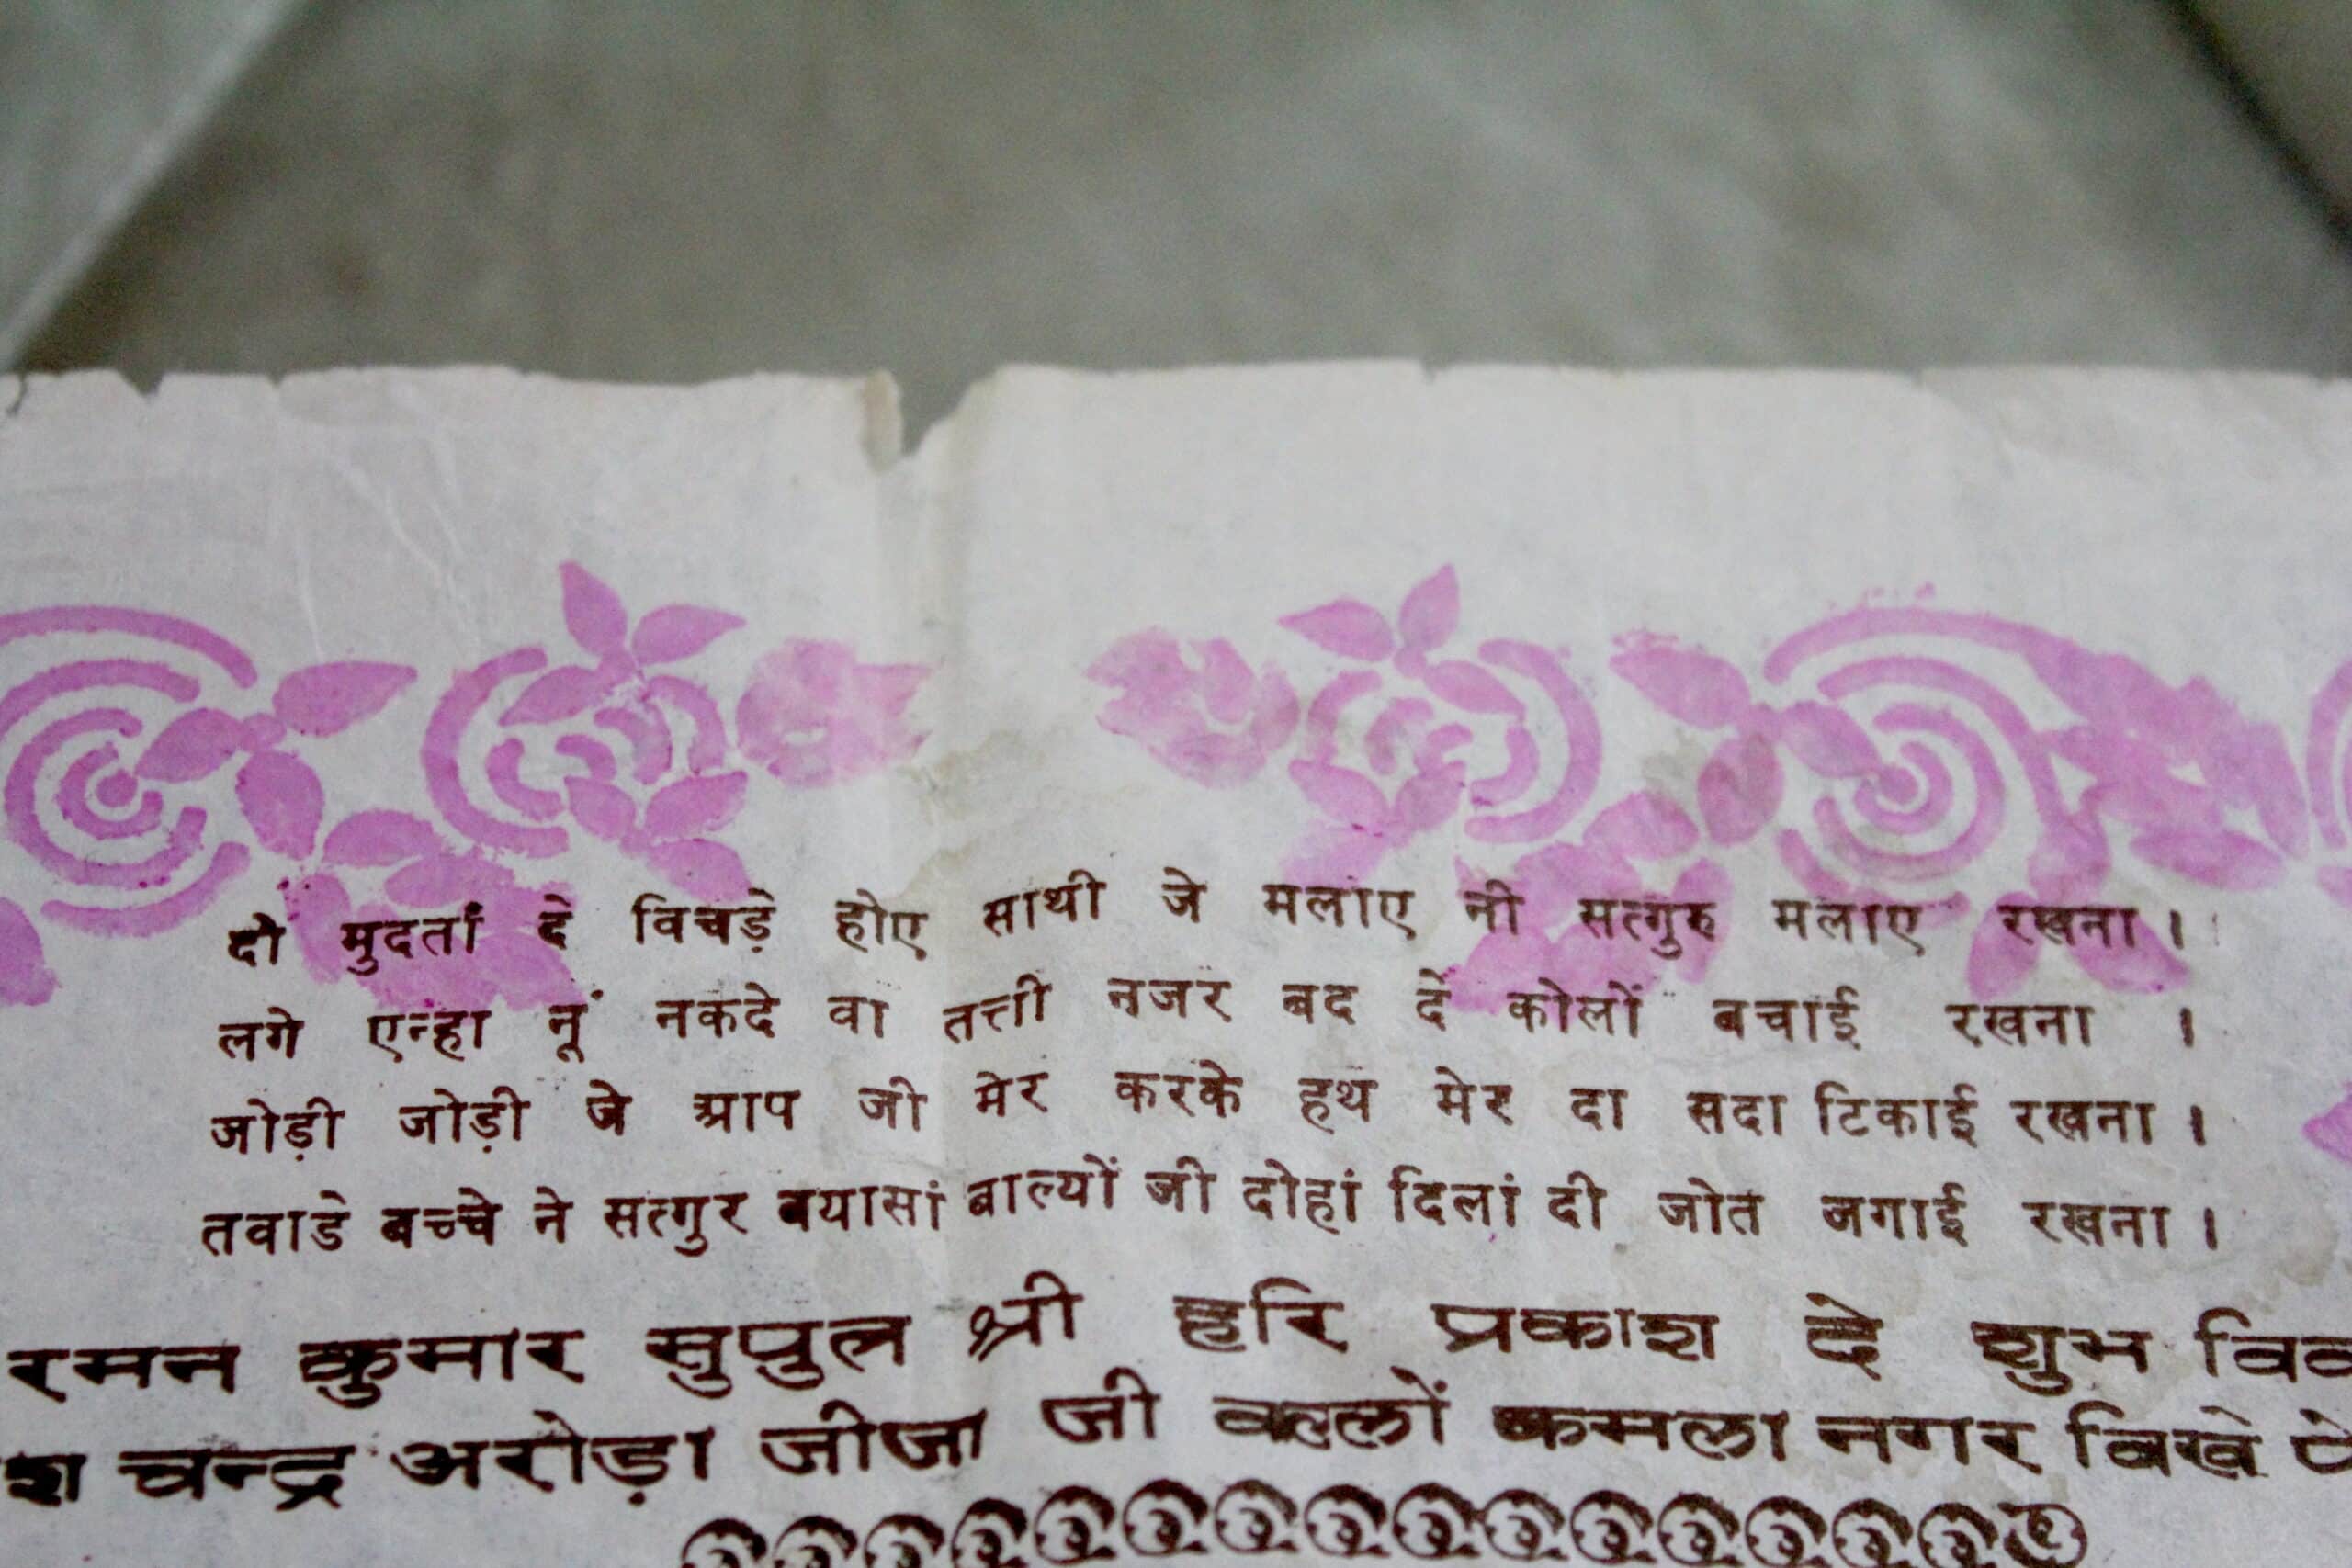 दो मुदतां दे विचड़े होए साथी जे मलाए नी सत्गुरु मलाए रखना ।
लगे एन्हा नूं नकदे वा तत्ती नजर बद दे कोलों बचाई रखना ।
जोड़ी जोड़ी जे आप जी मेर करके हथ मेर दा सदा टिकाई रखना ।
तवाडे बच्चे ने सत्गुर बयासां बाल्यों जी दोहां दिलां दी जोत जगाई रखना ।
रमन कुमार सुपुत्र श्री हरि प्रकाश दे शुभ
श चन्द्र अरोड़ा जीजा जी वल्लों कमला नगर विखे